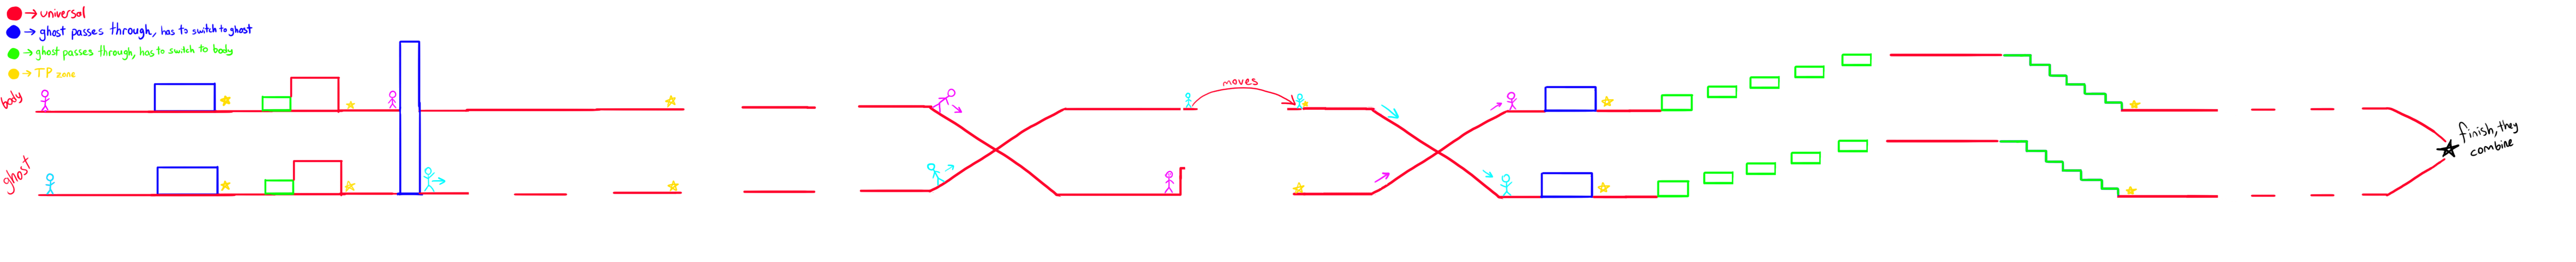 → universal
→ ghost passes through, has to switch to ghost
→ ghost passes through, has to switch to body
→ TP zone
body
moves
finish, they
combine
ghost